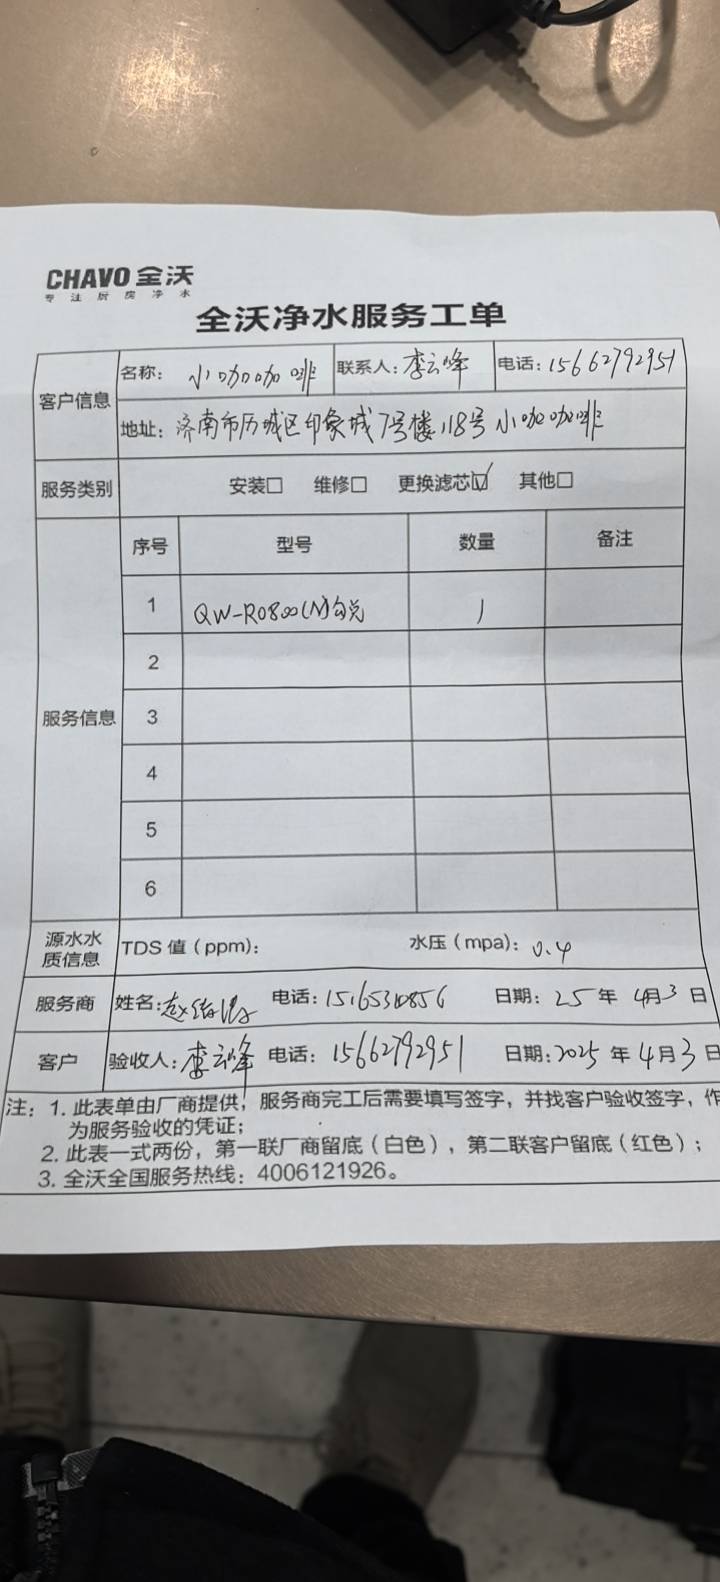 CHAVO 全沃
专注厨房净水
全沃净水服务工单
客户信息 名称: 小咖咖啡 联系人: 李云峰 电话: 15662792951
地址: 济南市历城区印象城7号楼118号小咖咖啡
服务类别 安装□ 维修□ 更换滤芯☑ 其他□
服务信息 序号 型号 数量 备注
1 QW-RO800(N)勾兑 1
2
3
4
5
6
源水水质信息 TDS 值(ppm): 水压(mpa): 0.4
服务商 姓名: 赵 电话: 日期: 25 年 4月3日
客户 验收人: 李云峰 电话: 15662792951 日期: 2025 年 4 月 3 日
注: 1. 此表单由厂商提供, 服务商完工后需要填写签字, 并找客户验收签字, 作
为服务验收的凭证;
2. 此表一式两份, 第一联厂商留底(白色), 第二联客户留底(红色);
3. 全沃全国服务热线: 4006121926。